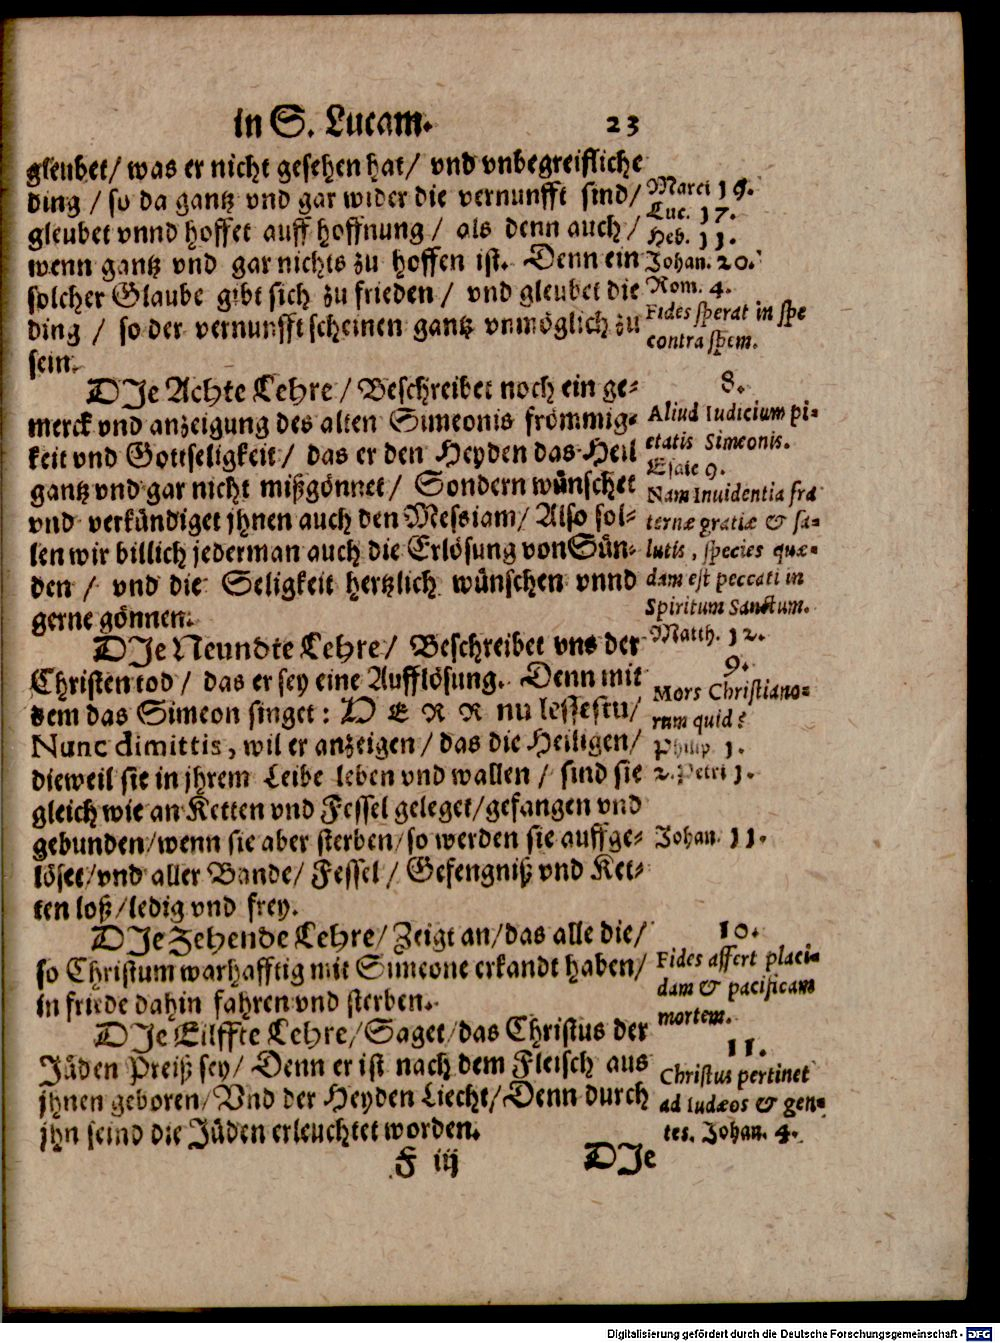 in S. Lucam. 23
gleubet/ was er nicht gesehen hat/ vnd vnbegreifliche
ding / so da gantz vnd gar wider die vernunfft sind/
gleubet vnnd hoffet auff hoffnung / als denn auch /
wenn gantz vnd gar nichts zu hoffen ist. Denn ein
solcher Glaube gibt sich zu frieden / vnd gleubet die
ding / so der vernunfft scheinen gantz vnmöglich zu
sein.
DIe Achte Lehre / Beschreibet noch ein ge-
merck vnd anzeigung des alten Simeonis frömmig-
keit vnd Gottseligkeit / das er den Heyden das Heil
gantz vnd gar nicht mißgönnet / Sondern wünschet
vnd verkündiget jhnen auch den Messiam/ Also sol-
len wir billich jederman auch die Erlösung von Sün-
den / vnd die Seligkeit hertzlich wünschen vnnd
gerne gönnen.
DIe Neundte Lehre / Beschreibet vns der
Christen tod / das er sey eine Aufflösung. Denn mit
dem das Simeon singet: HERR nu lessestu/
Nunc dimittis, wil er anzeigen / das die Heiligen/
dieweil sie in jhrem Leibe leben vnd wallen / sind sie
gleich wie an Ketten vnd Fessel geleget/gefangen vnd
gebunden/wenn sie aber sterben/so werden sie auffge-
löset/vnd aller Bande/ Fessel / Gefengniß vnd Ket-
ten loß/ledig vnd frey.
DIe Zehende Lehre/ Zeigt an/das alle die/
so Christum warhafftig mit Simeone erkandt haben/
in friede dahin fahren vnd sterben.
DIe Eilffte Lehre/Saget/das Christus der
Jüden Preiß sey/ Denn er ist nach dem Fleisch aus
jhnen geboren/Vnd der Heyden Liecht/Denn durch
jhn seind die Jüden erleuchtet worden.
F iij DIe
Marci 19.
Luc. 17.
Heb. 11.
Johan. 20.
Rom. 4.
Fides sperat in spe
contra spem.
8.
Aliud Iudicium pi-
etatis Simeonis.
Esaie 9.
Nam Inuidentia fra
ternæ gratiæ & sa-
lutis, species quæ-
dam est peccati in
Spiritum Sanctum.
Matth. 12.
9.
Mors Christiano-
rum quid?
Philip. 1.
2. Petri 1.
Johan. 11.
10.
Fides affert placi-
dam & pacificam
mortem.
11.
Christus pertinet
ad Iudæos & gen-
tes. Johan. 4.
Digitalisierung gefördert durch die Deutsche Forschungsgemeinschaft - DFG